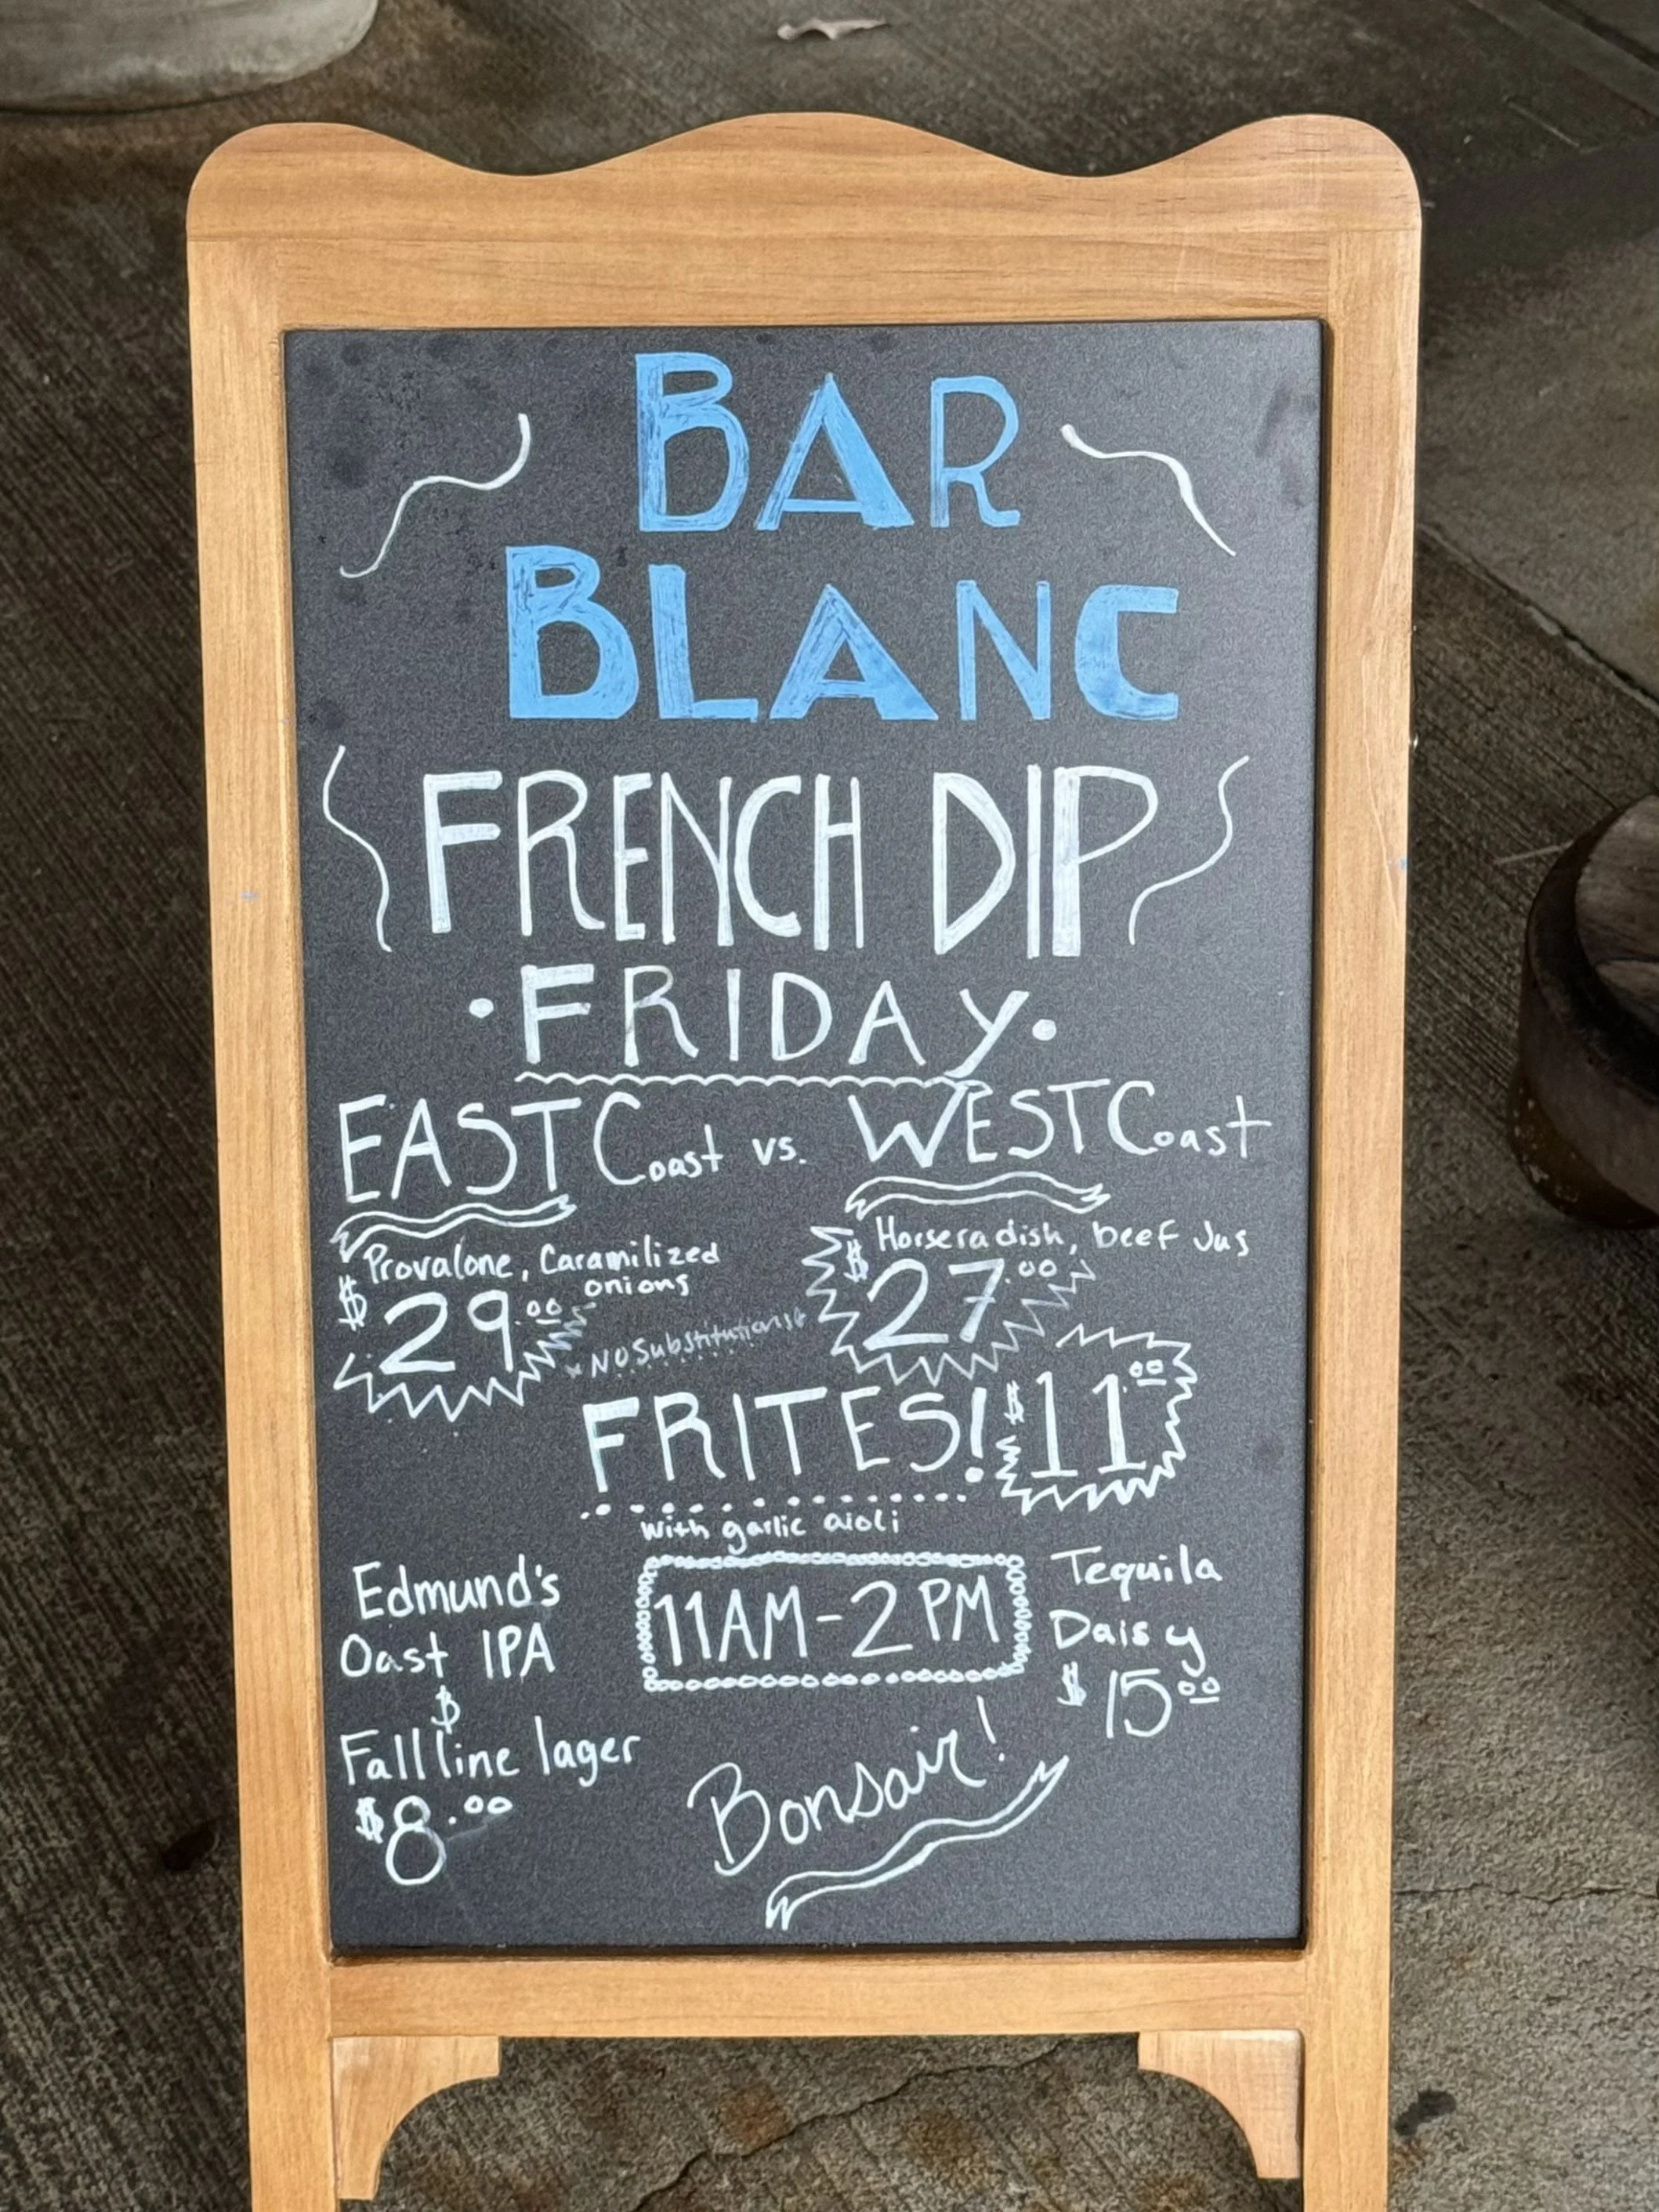 BAR
BLANC
FRENCH DIP
·FRIDAY·
EAST Coast vs. WEST Coast
Provalone, Caramilized
onions
$29.00
Horseradish, beef Jus
$27.00
*NO Substitutions*
FRITES! $11.00
with garlic aioli
Edmund's
Oast IPA
$
Fall line lager
$8.00
11AM-2PM
Tequila
Daisy
$15.00
Bonsair!